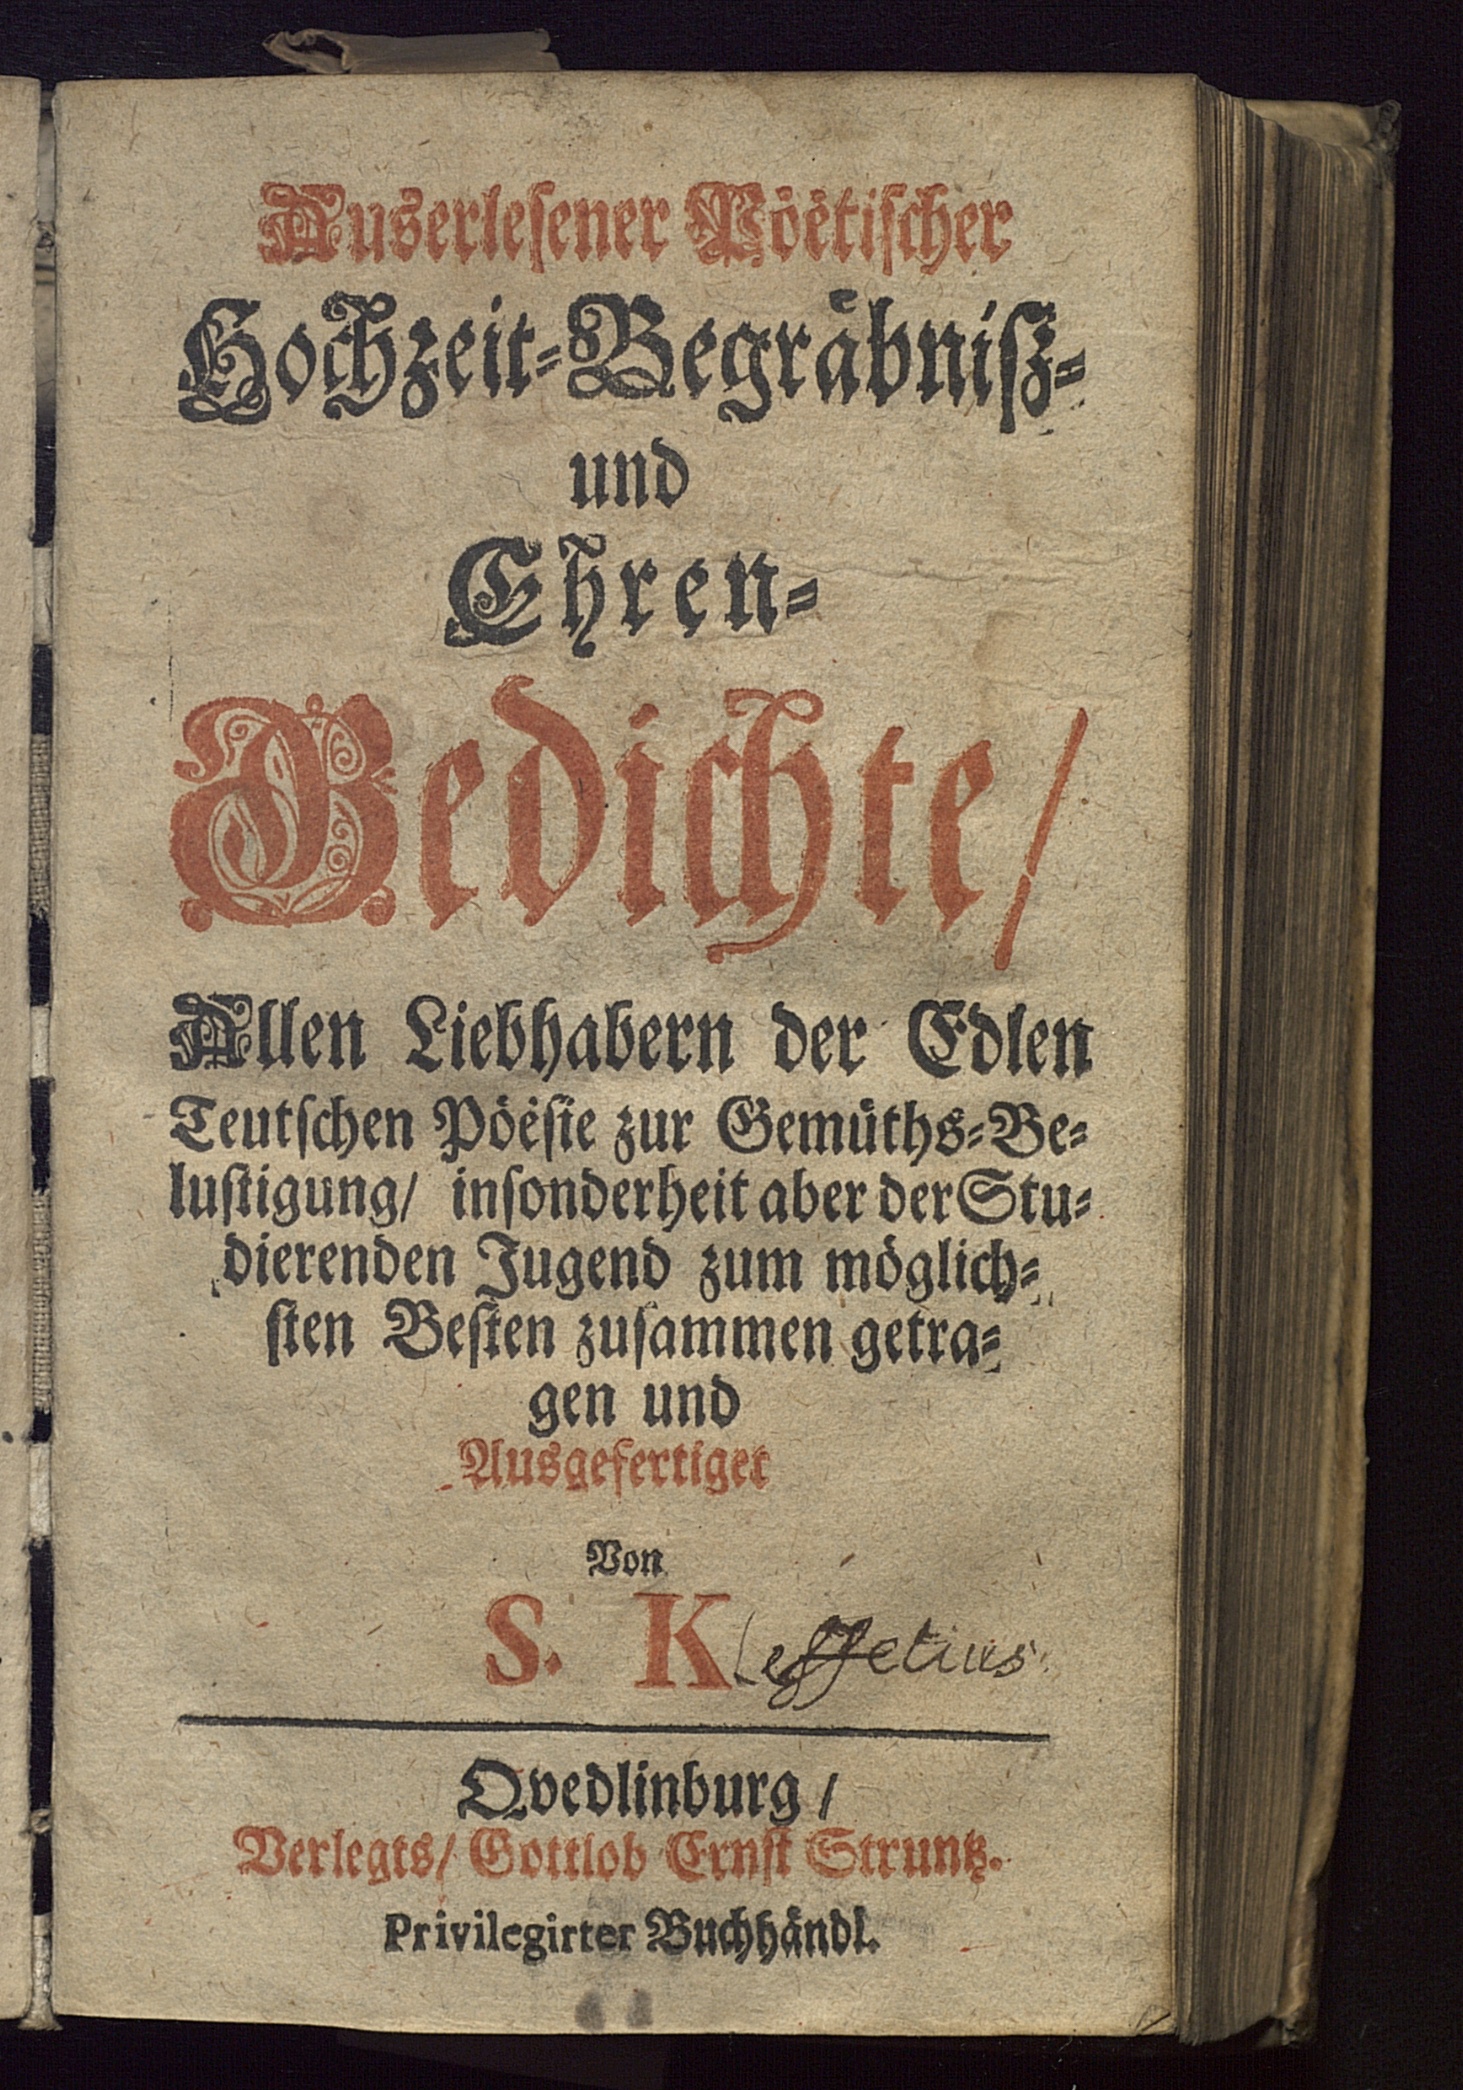 Auserlesener Pöëtischer
Hochzeit-Begräbniß-
und
Ehren-
Gedichte/
Allen Liebhabern der Edlen
Teutschen Pöësie zur Gemüths-Be-
lustigung/ insonderheit aber der Stu-
dierenden Jugend zum möglich-
sten Besten zusammen getra-
gen und
Ausgefertiget
Von
S. K
Qvedlinburg/
Verlegts/ Gottlob Ernst Struntz.
Privilegirter Buchhändl.